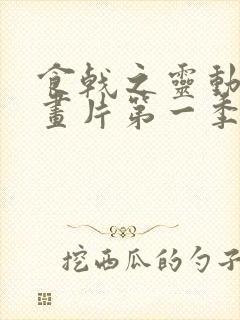 食戟之靈動
畫片第一季
挖西瓜的勺子